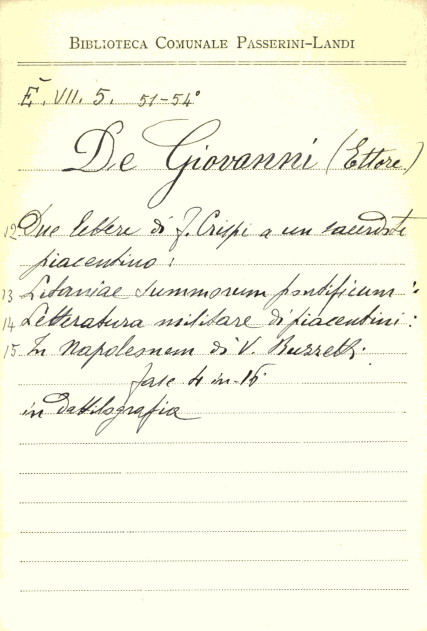 BIBLIOTECA COMUNALE PASSERINI-LANDI
Ē. VII. 5. 51-54°
De Giovanni (Ettore)
12 Due lettere di F. Crispi a un sacerdote
piacentino:
13 Litaniae summorum pontificum:
14 Letteratura militare di piacentini:
15 In Napoleonem di V. Buzzetti.
fasc 4 in-16
in dattilografia